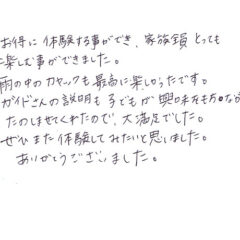 お得に体験する事ができ、家族全員とっても
楽しむ事ができました。
雨の中のカヤックも最高に楽しかったです。
ガイドさんの説明も子どもが興味をもちなが
たのしませてくれたので、大満足でした。
ぜひまた体験してみたいと思いました。
ありがとうございました。